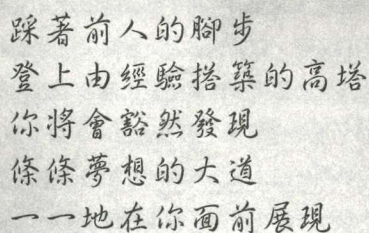 踩著前人的腳步
登上由經驗搭築的高塔
你將會豁然發現
條條夢想的大道
一一地在你面前展現